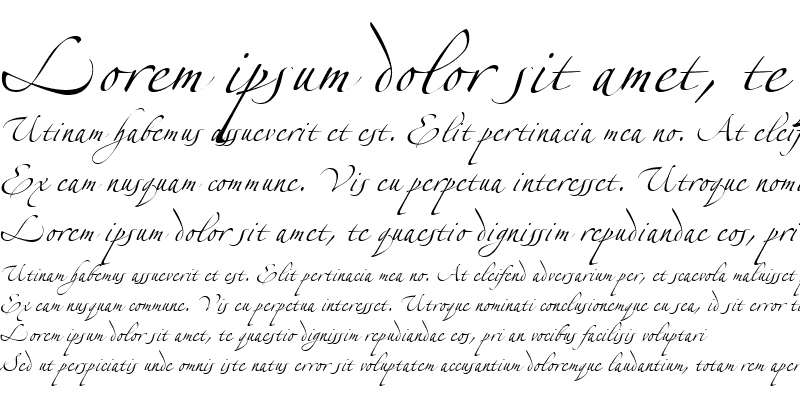 Lorem ipsum dolor sit amet, te
Utinam habemus assueverit et est. Elit pertinacia mea no. At eleif
Ex eam nusquam commune. Vis eu perpetua interesset. Utroque nomi
Lorem ipsum dolor sit amet, te quaestio dignissim repudiandae eos, pri
Utinam habemus assueverit et est. Elit pertinacia mea no. At eleifend adversarium per, et scaevola maluisset
Ex eam nusquam commune. Vis eu perpetua interesset. Utroque nominati conclusionemque eu sea, id sit error
Lorem ipsum dolor sit amet, te quaestio dignissim repudiandae eos, pri an vocibus facilisis voluptari
Sed ut perspiciatis unde omnis iste natus error sit voluptatem accusantium doloremque laudantium, totam rem aper